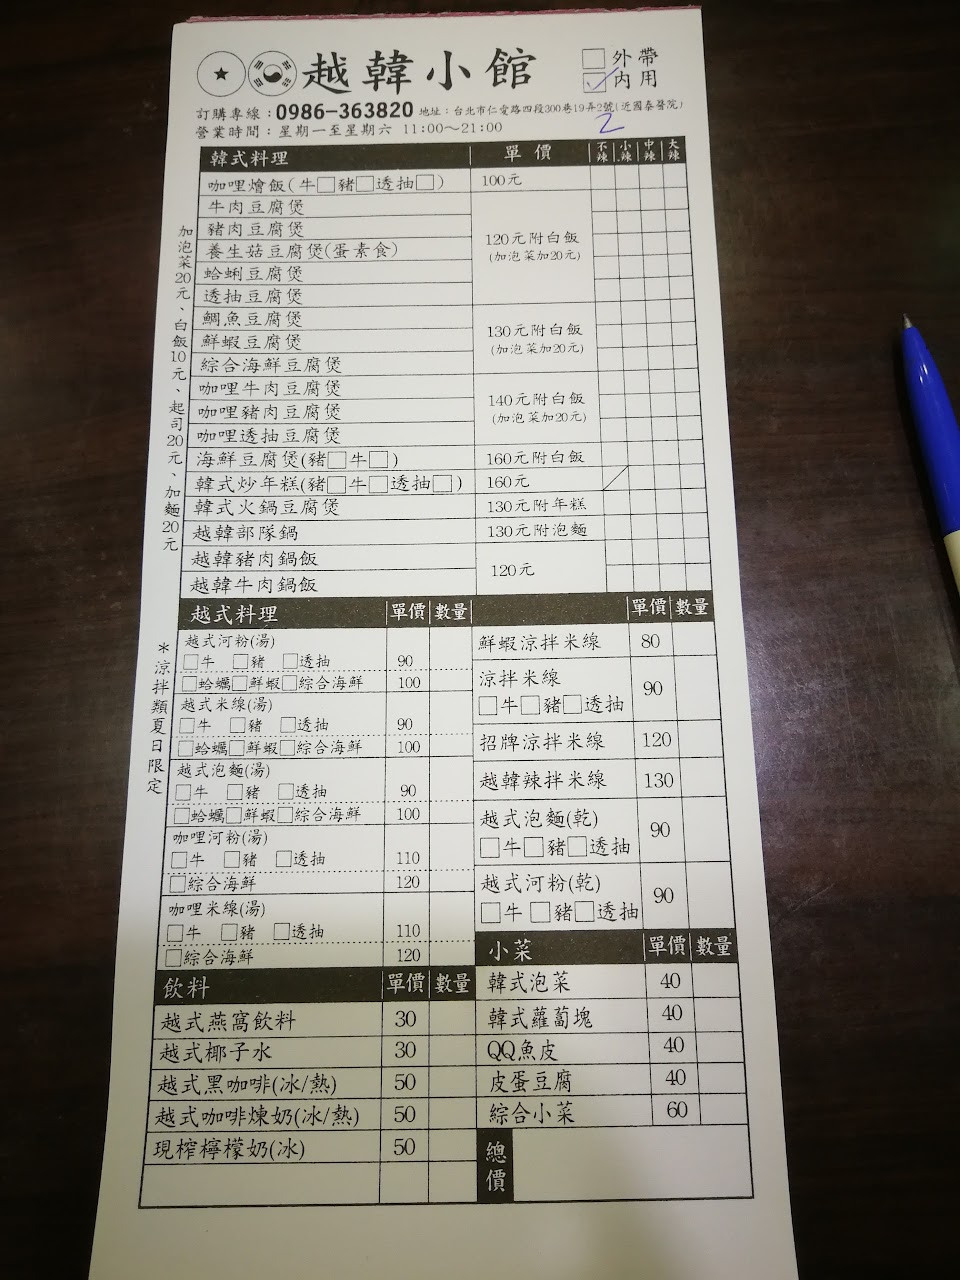 越韓小館
□外帶
☑內用
訂購專線：0986-363820 地址：台北市仁愛路四段300巷19弄2號(近國泰醫院)
營業時間：星期一至星期六 11:00～21:00
2
韓式料理 單價 不辣 小辣 中辣 大辣
咖哩燴飯(牛□豬□透抽□) 100元
牛肉豆腐煲
豬肉豆腐煲
養生菇豆腐煲(蛋素食) 120元附白飯
(加泡菜加20元)
蛤蜊豆腐煲
透抽豆腐煲
鯛魚豆腐煲
鮮蝦豆腐煲 130元附白飯
(加泡菜加20元)
綜合海鮮豆腐煲
咖哩牛肉豆腐煲
咖哩豬肉豆腐煲 140元附白飯
(加泡菜加20元)
咖哩透抽豆腐煲
海鮮豆腐煲(豬□牛□) 160元附白飯
韓式炒年糕(豬□牛□透抽□) 160元
韓式火鍋豆腐煲 130元附年糕
越韓部隊鍋 130元附泡麵
越韓豬肉鍋飯
越韓牛肉鍋飯 120元
加泡菜20元、白飯10元、起司20元、加麵20元
越式料理 單價 數量
越式河粉(湯)
□牛 □豬 □透抽 90
□蛤蠣□鮮蝦□綜合海鮮 100
越式米線(湯)
□牛 □豬 □透抽 90
□蛤蠣□鮮蝦□綜合海鮮 100
越式泡麵(湯)
□牛 □豬 □透抽 90
□蛤蠣□鮮蝦□綜合海鮮 100
咖哩河粉(湯)
□牛 □豬 □透抽 110
□綜合海鮮 120
咖哩米線(湯)
□牛 □豬 □透抽 110
□綜合海鮮 120
＊涼拌類夏日限定
單價 數量
鮮蝦涼拌米線 80
涼拌米線
□牛□豬□透抽 90
招牌涼拌米線 120
越韓辣拌米線 130
越式泡麵(乾)
□牛□豬□透抽 90
越式河粉(乾)
□牛 □豬□透抽 90
飲料 單價 數量
越式燕窩飲料 30
越式椰子水 30
越式黑咖啡(冰/熱) 50
越式咖啡煉奶(冰/熱) 50
現榨檸檬奶(冰) 50
小菜 單價 數量
韓式泡菜 40
韓式蘿蔔塊 40
QQ魚皮 40
皮蛋豆腐 40
綜合小菜 60
總價